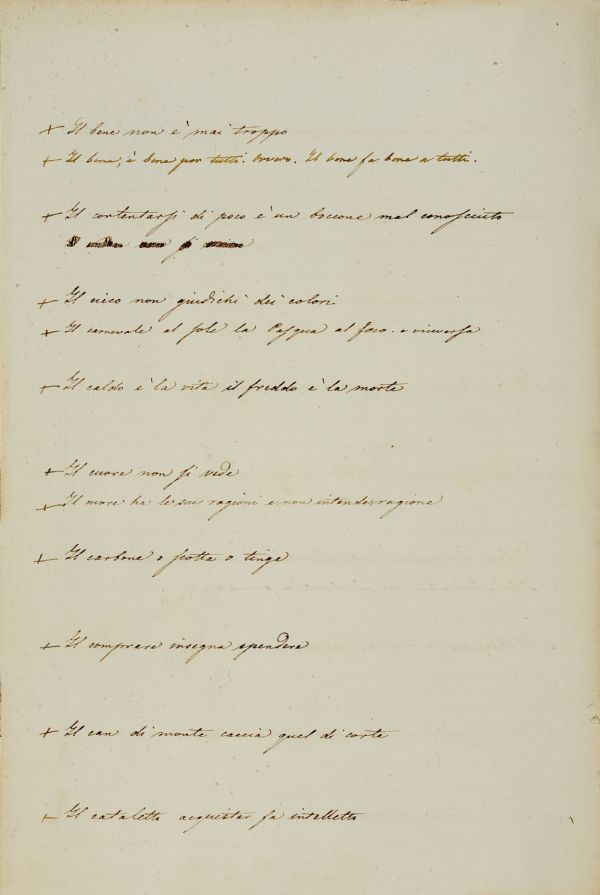 + Il bene non è mai troppo
+ Il bene, è bene per tutti. Ovvero. Il bene fa bene a tutti.
+ Il contentarsi di poco è un boccone mal conosciuto
+ Il cieco non giudichi dei colori
+ Il carnevale al sole la Pasqua al foco. e viceversa
+ Il caldo è la vita il freddo è la morte
+ Il cuore non si vede
+ Il cuore ha le sue ragioni e non intende ragione
+ Il carbone o scotta o tinge
+ Il comprare insegna spendere
+ Il can di monte caccia quel di corte
+ Il cataletto acquistar fa intelletto